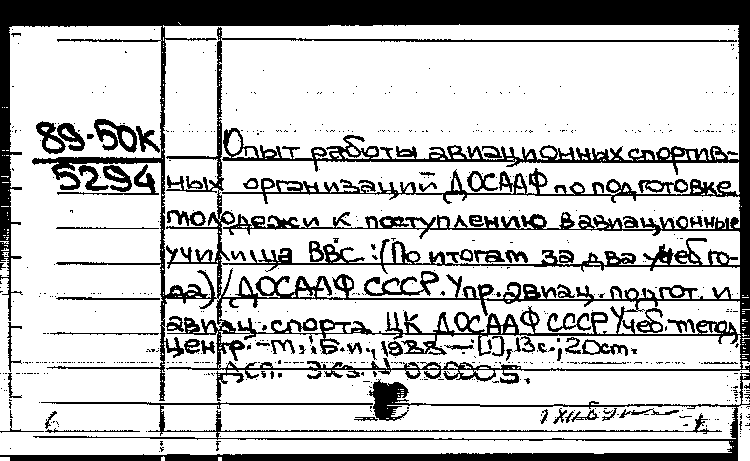 89-50К
5294
Опыт работы авиационных спортив-
ных организаций ДОСААФ по подготовке
молодежи к поступлению в авиационные
училища ВВС : (По итогам за два учеб го-
да) / ДОСААФ СССР. Упр. авиац. подгот. и
авиац. спорта, ЦК ДОСААФ СССР. Учеб.-метод.
центр. - М.: Б.и., 1988. - [1], 13 с.; 20 см.
ДСП. Экз. N 000005.
6